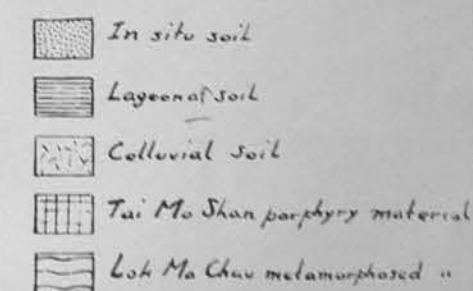 In situ soil
Lagoonal soil
Colluvial soil
Tai Mo Shan porphyry material
Lok Ma Chau metamorphosed "